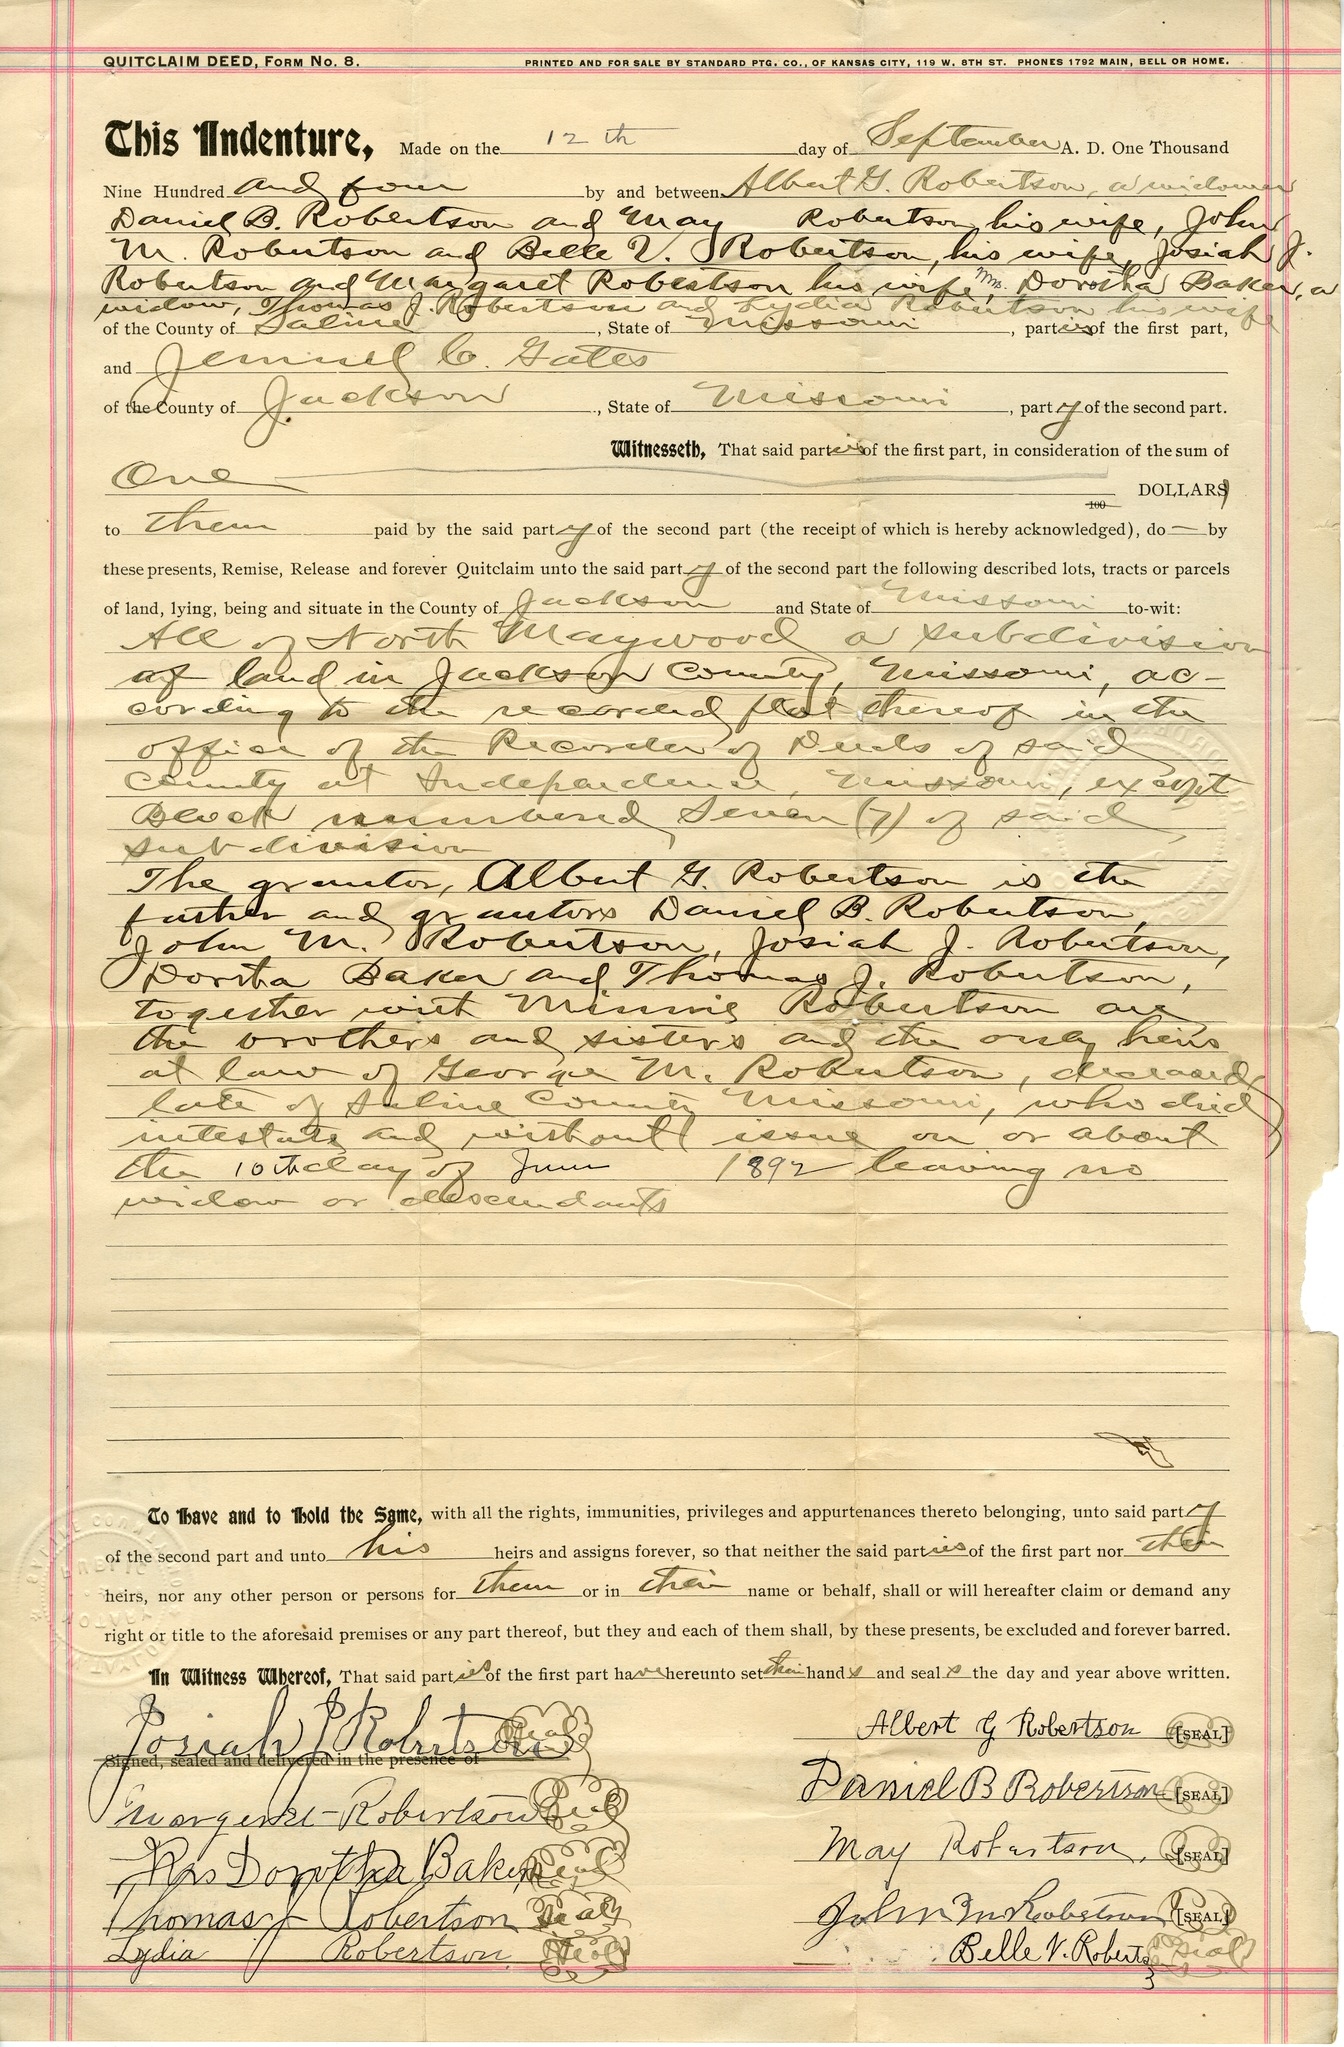 QUITCLAIM DEED, FORM NO. 8. PRINTED AND FOR SALE BY STANDARD PTG. CO., OF KANSAS CITY, 119 W. 8TH ST. PHONES 1792 MAIN, BELL OR HOME.
This Indenture, Made on the 12th day of September A. D. One Thousand
Nine Hundred and four by and between Albert G. Robertson, a widower
Daniel B. Robertson and May Robertson, his wife, John
M. Robertson and Belle V. Robertson, his wife, Josiah J.
Robertson and Margaret Robertson his wife, Mrs. Dorotha Baker, a
widow, Thomas J. Robertson and Lydia Robertson his wife
of the County of Saline, State of Missouri, parties of the first part,
and Jemuel C. Gates
of the County of Jackson, State of Missouri, party of the second part.
Witnesseth, That said parties of the first part, in consideration of the sum of
One 100 DOLLARS
to them paid by the said party of the second part (the receipt of which is hereby acknowledged), do — by
these presents, Remise, Release and forever Quitclaim unto the said party of the second part the following described lots, tracts or parcels
of land, lying, being and situate in the County of Jackson and State of Missouri to-wit:
All of North Maywood a subdivision
of land in Jackson County, Missouri, ac-
cording to the recorded plat thereof in the
office of the Recorder of Deeds of said
County at Independence, Missouri, except
Block numbered Seven (7) of said
subdivision
The grantor, Albert G. Robertson is the
father and grantors Daniel B. Robertson,
John M. Robertson, Josiah J. Robertson,
Dorotha Baker and Thomas J. Robertson,
together with Minnie Robertson are
the brothers and sisters and the only heirs
at law of George M. Robertson, deceased,
late of Saline County Missouri, who died
intestate and without issue on or about
the 10th day of June 1892 leaving no
widow or descendants
To Have and to Hold the Same, with all the rights, immunities, privileges and appurtenances thereto belonging, unto said party
of the second part and unto his heirs and assigns forever, so that neither the said parties of the first part nor their
heirs, nor any other person or persons for them or in their name or behalf, shall or will hereafter claim or demand any
right or title to the aforesaid premises or any part thereof, but they and each of them shall, by these presents, be excluded and forever barred.
In Witness Whereof, That said parties of the first part have hereunto set their hands and seals the day and year above written.
Josiah J Robertson Seal
Signed, sealed and delivered in the presence of
Margaret Robertson Seal
Mrs Dorotha Baker Seal
Thomas J Robertson Seal
Lydia Robertson Seal
Albert G Robertson [SEAL]
Daniel B Robertson [SEAL]
May Robertson. [SEAL]
John M Robertson [SEAL]
Belle V. Robertson Seal